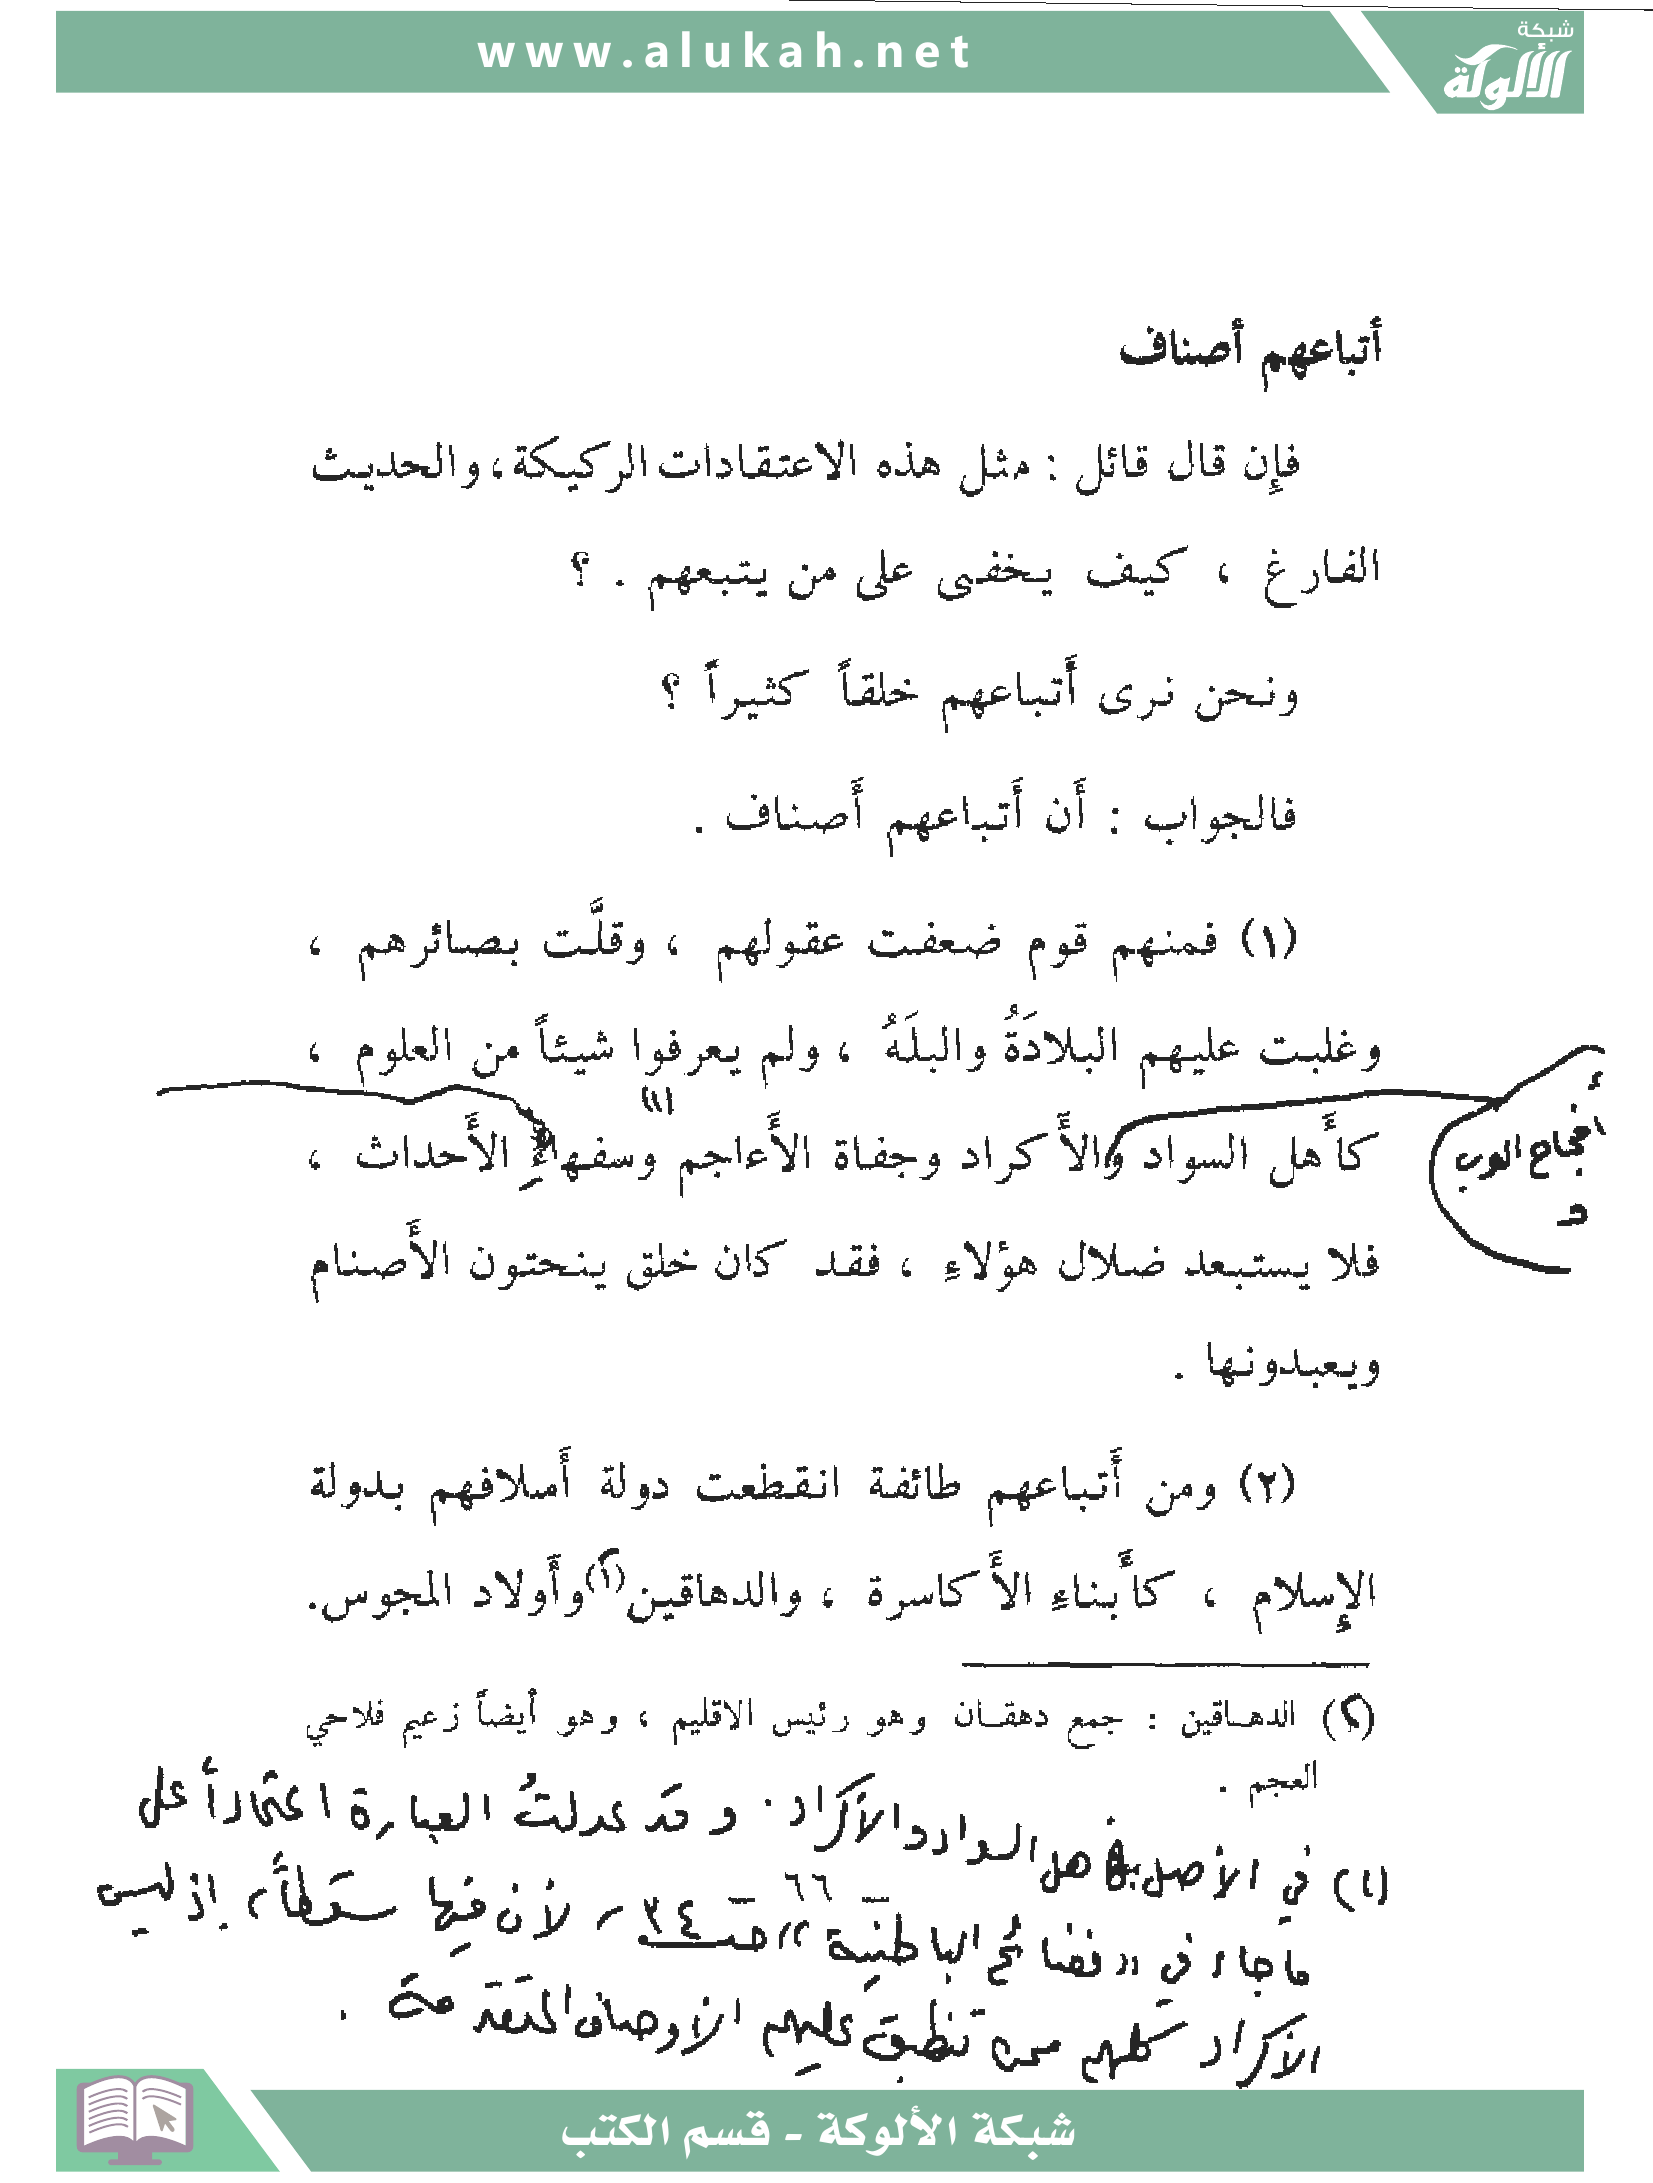 www.alukah.net
شبكة
الألوكة
أتباعهم أصناف
فإِن قال قائل : مثل هذه الاعتقادات الركيكة، والحديث
الفارغ ، كيف يخفى على من يتبعهم . ؟
ونحن نرى أَتباعهم خلقاً كثيراً ؟
فالجواب : أَن أَتباعهم أَصناف .
(١) فمنهم قوم ضعفت عقولهم ، وقلَّت بصائرهم ،
وغلبت عليهم البلادَةُ والبلَهُ ، ولم يعرفوا شيئاً من العلوم ،
(١)
كأَهل السواد والأَكراد وجفاة الأَعاجم وسفهاءِ الأَحداث ،
العرب
فلا يستبعد ضلال هؤلاءِ ، فقد كان خلق ينحتون الأَصنام
ويعبدونها .
(٢) ومن أَتباعهم طائفة انقطعت دولة أَسلافهم بدولة
الإِسلام ، كأَبناءِ الأَكاسرة ، والدهاقين(٢) وأَولاد المجوس.
(٢) الدهاقين : جمع دهقان وهو رئيس الاقليم ، وهو أيضاً زعيم فلاحي
العجم .
(١) في الأصل هل السواد والأكراد . وقد عدلتُ العبارة اعتماداً على
ما جاء في «فضائح الباطنية» صـ ٣٤ ـ ٦٦ ـ لأن فيها سقطاً، إذ ليس
الأكراد كلهم ممن تنطبق عليهم الأوصاف المتقدمة .
شبكة الألوكة - قسم الكتب